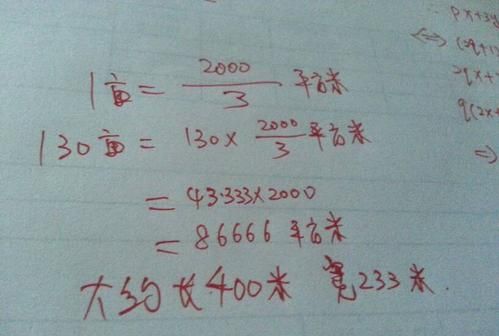 1亩 = 2000/3 平方米
130亩 = 130 × 2000/3 平方米
= 43.333×2000
= 86666 平方米
大约长400米 宽233米.
px+3y